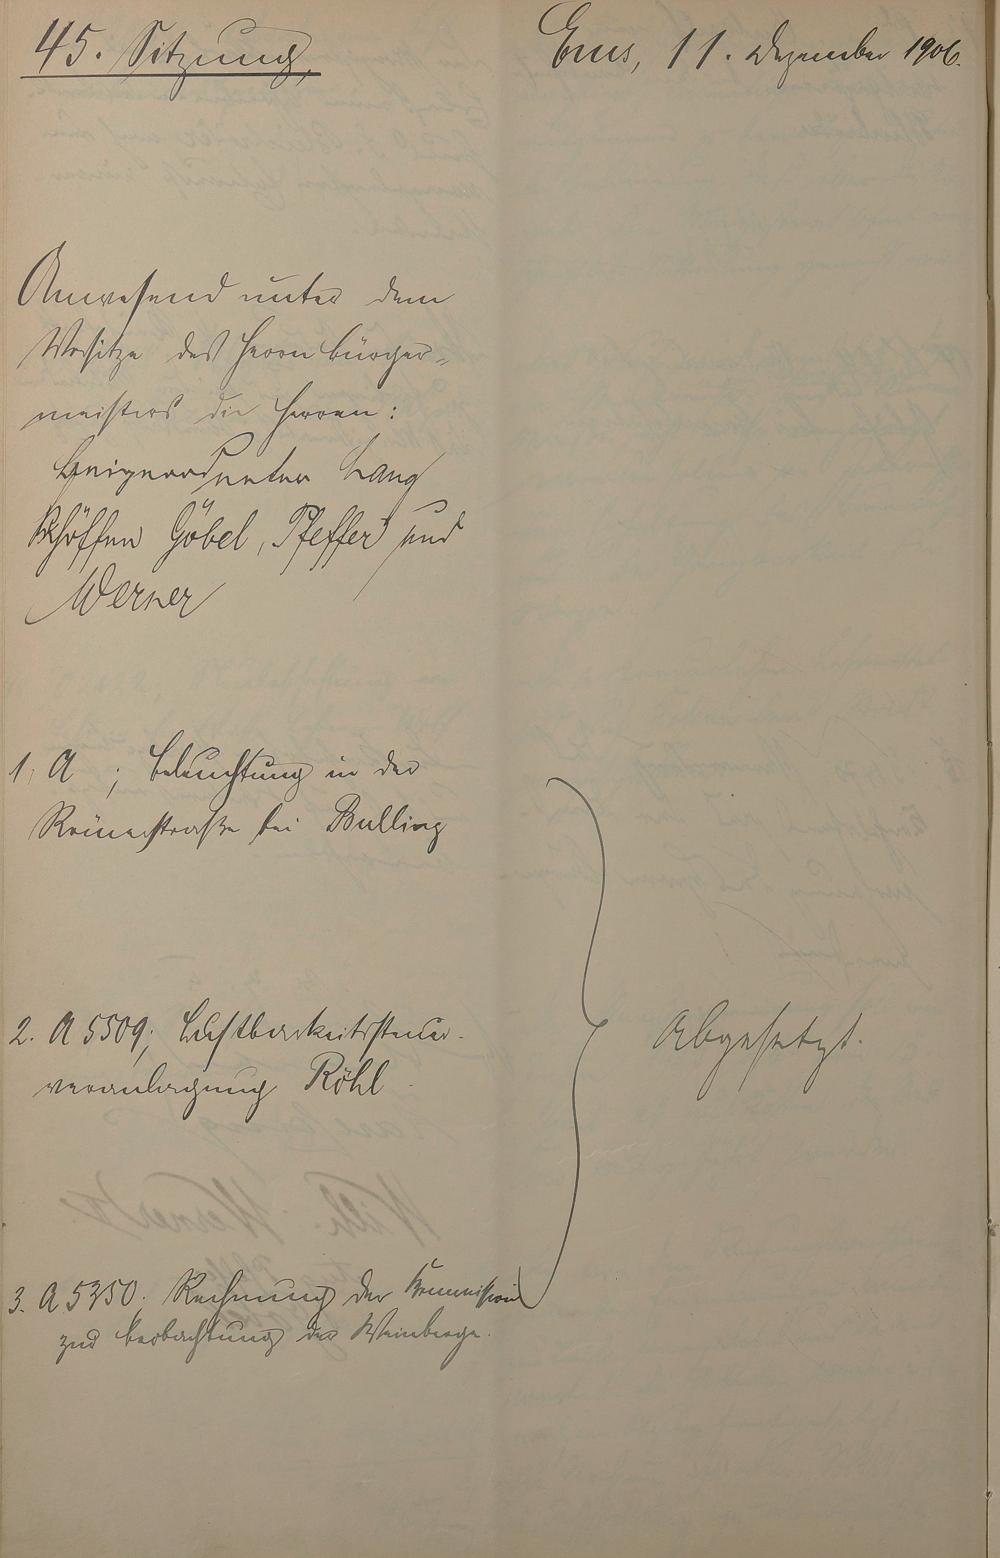 45. Sitzung,
Ems, 11. Dezember 1906.
Anwesend unter dem
Vorsitze des Herrn Bürger-
meisters die Herren:
Beigeordneter Lang
Schöffen Göbel, Pfeffer und
Werner
1. A ; Beleuchtung in der
Römerstraße bei Bulling
2. A 5509; Lustbarkeitssteuer-
veranlagung Röhl
Abgesetzt.
3. A 5350. Rechnung der Kommission
zur Beobachtung der Weinberge.